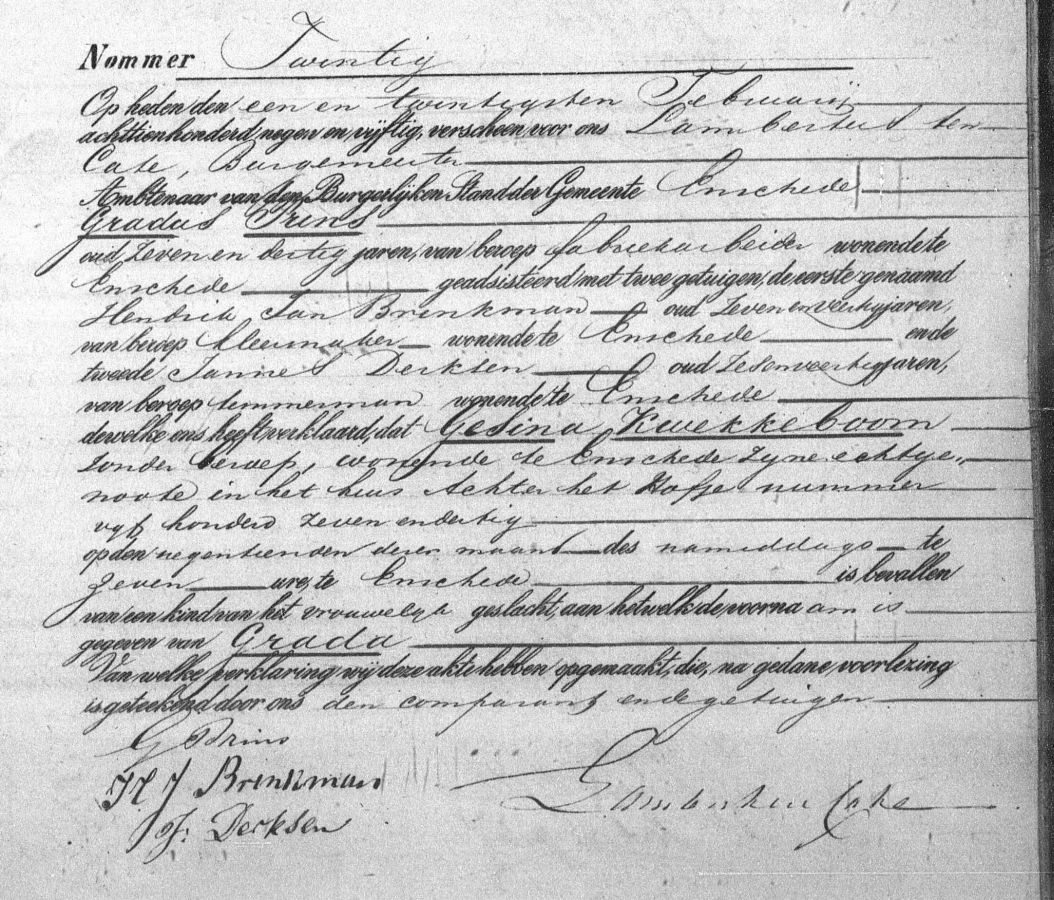 Nommer Twintig
Op heden den een en twintigsten Februarij
achttienhonderd negen en vijftig, verscheen voor ons Lambertus ten
Cate, Burgemeester
Ambtenaar van den Burgerlijken Stand der Gemeente Enschede
Gradus Prins
oud zeven en dertig jaren, van beroep fabriekarbeider wonende te
Enschede geadsisteerd met twee getuigen, de eerste genaamd
Hendrik Jan Brinkman oud zeven en veertig jaren,
van beroep kleermaker wonende te Enschede en de
tweede Jannes Derksen oud zes en veertig jaren,
van beroep temmerman wonende te Enschede
dewelke ons heeft verklaard, dat Gesina Kwekkeboom
zonder beroep, wonende te Enschede zyne echtge-
noote in het huis Achter het Hofje nummer
vyf honderd zeven en dertig
op den negentienden dezer maand des namiddags te
zeven ure, te Enschede is bevallen
van een kind van het vrouwelyk geslacht, aan hetwelk de voornaam is
gegeven van Grada
Van welke verklaring wij deze akte hebben opgemaakt, die, na gedane voorlezing
is geteekend door ons den comparant en de getuigen
G Prins
H J Brinkman
J. Derksen
Lambertus ten Cate